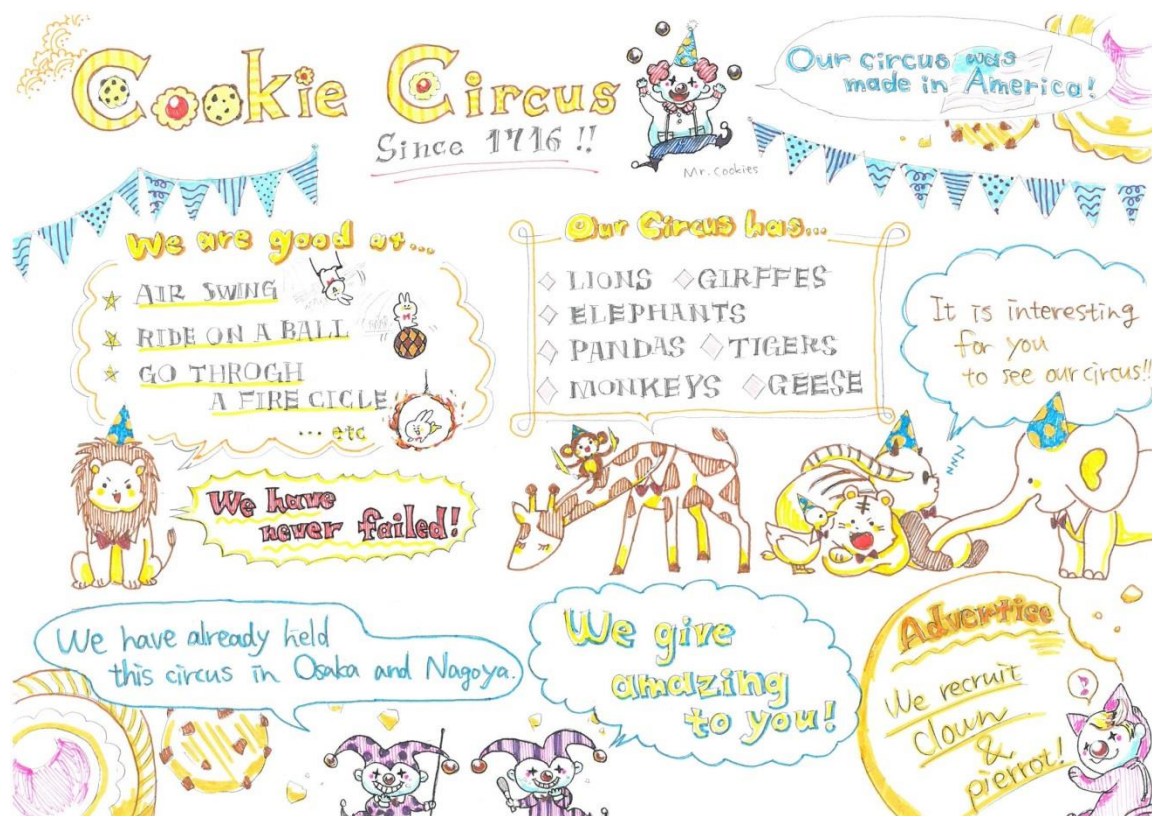 Cookie Circus
Since 1716 !!
Mr. Cookies
Our circus was
made in America!
We are good at...
AIR SWING
RIDE ON A BALL
GO THROGH
A FIRE CICLE
... etc
Our Circus has...
LIONS GIRFFES
ELEPHANTS
PANDAS TIGERS
MONKEYS GEESE
It is interesting
for you
to see our circus!!
zzz
We have
never failed!
We have already held
this circus in Osaka and Nagoya.
We give
amazing
to you!
Advertice
We recruit
clown
&
pierrot!